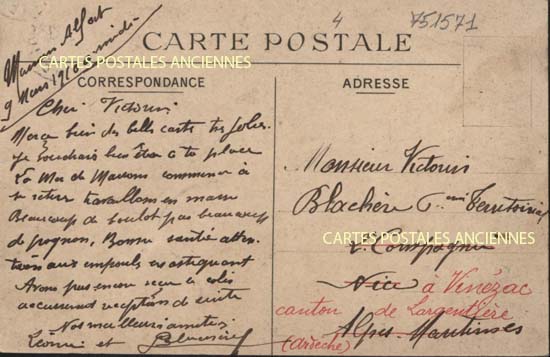 4
751571
Maisons Alfort
9 Mars 1916
CARTE POSTALE
CARTES POSTALES ANCIENNES
CORRESPONDANCE
ADRESSE
Cher Victorin
Merci bien des belles cartes très jolies
Je voudrais bien être à ta place
La Mre de Maisons commence à
se retirer travaillons en masse
Beaucoup de boulot pas beaucoup
de pognon, Bonne santé atten-
tion aux ampoules en astiquant
Avons pas encore reçu le colis
accuserons réception de suite
Nos meilleures amitiés
Léonie et
Monsieur Victorin
Blachère Territorial
CARTES POSTALES ANCIENNES
Compagnie
Nice à Vinézac
canton de Largentière
(ardèche) Alpes-Maritimes